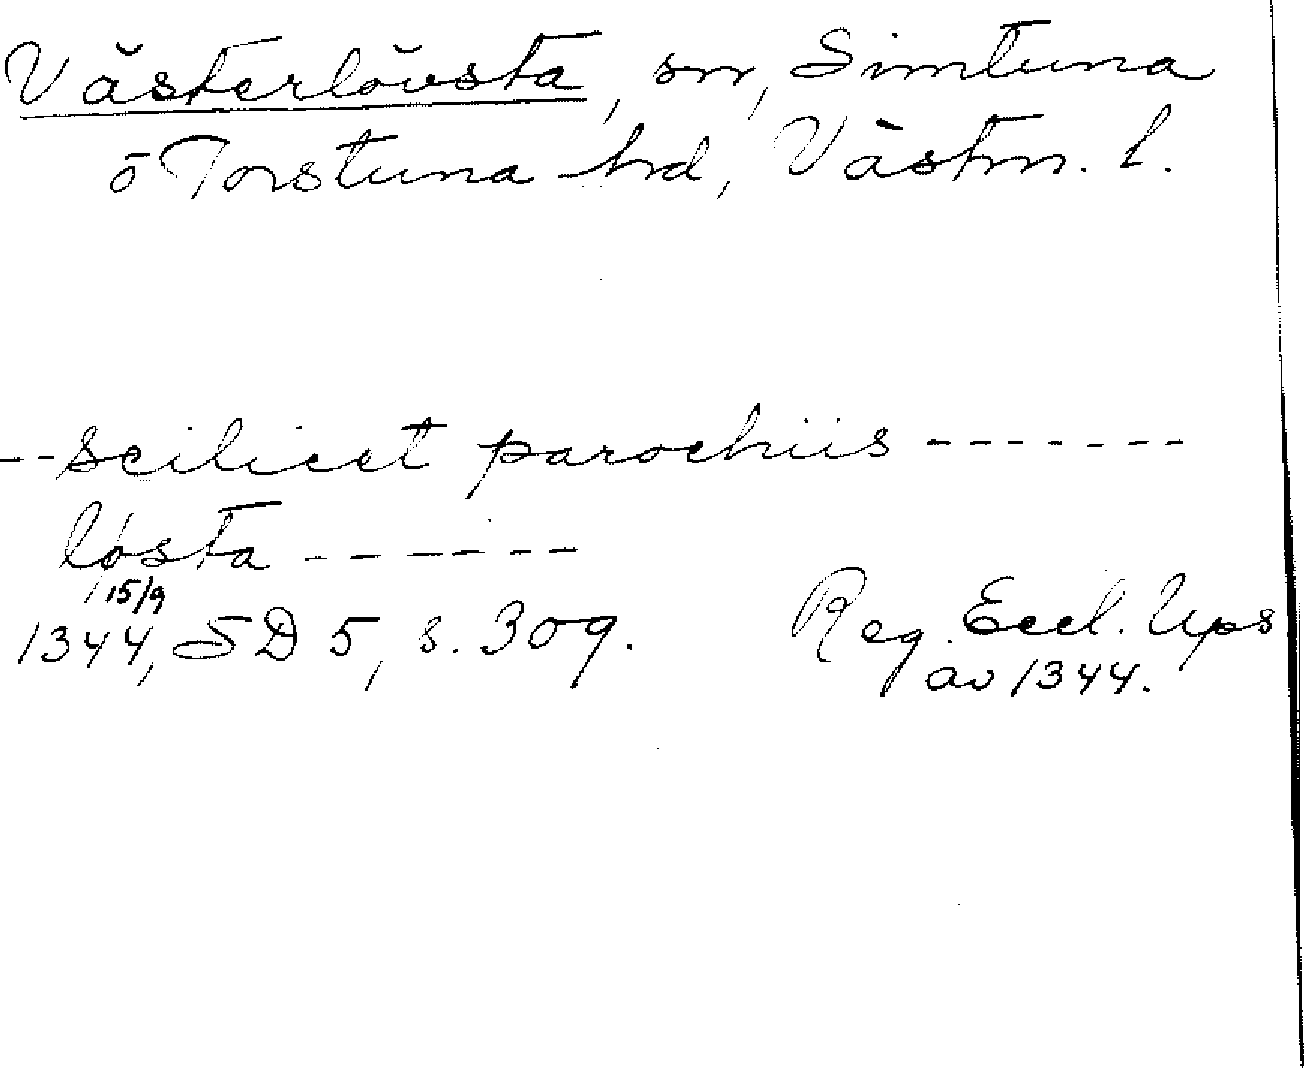 Västerlövsta, sn, Simtuna
o Torstuna hd, Västm. l.
--scilicet parochiis -------
løsta ------
15/9
1344, SD 5, s. 309.
Reg. Eccl. Ups
av 1344.